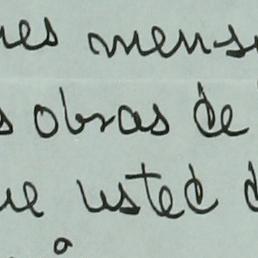 nes mens
s obras de
ue usted d
a